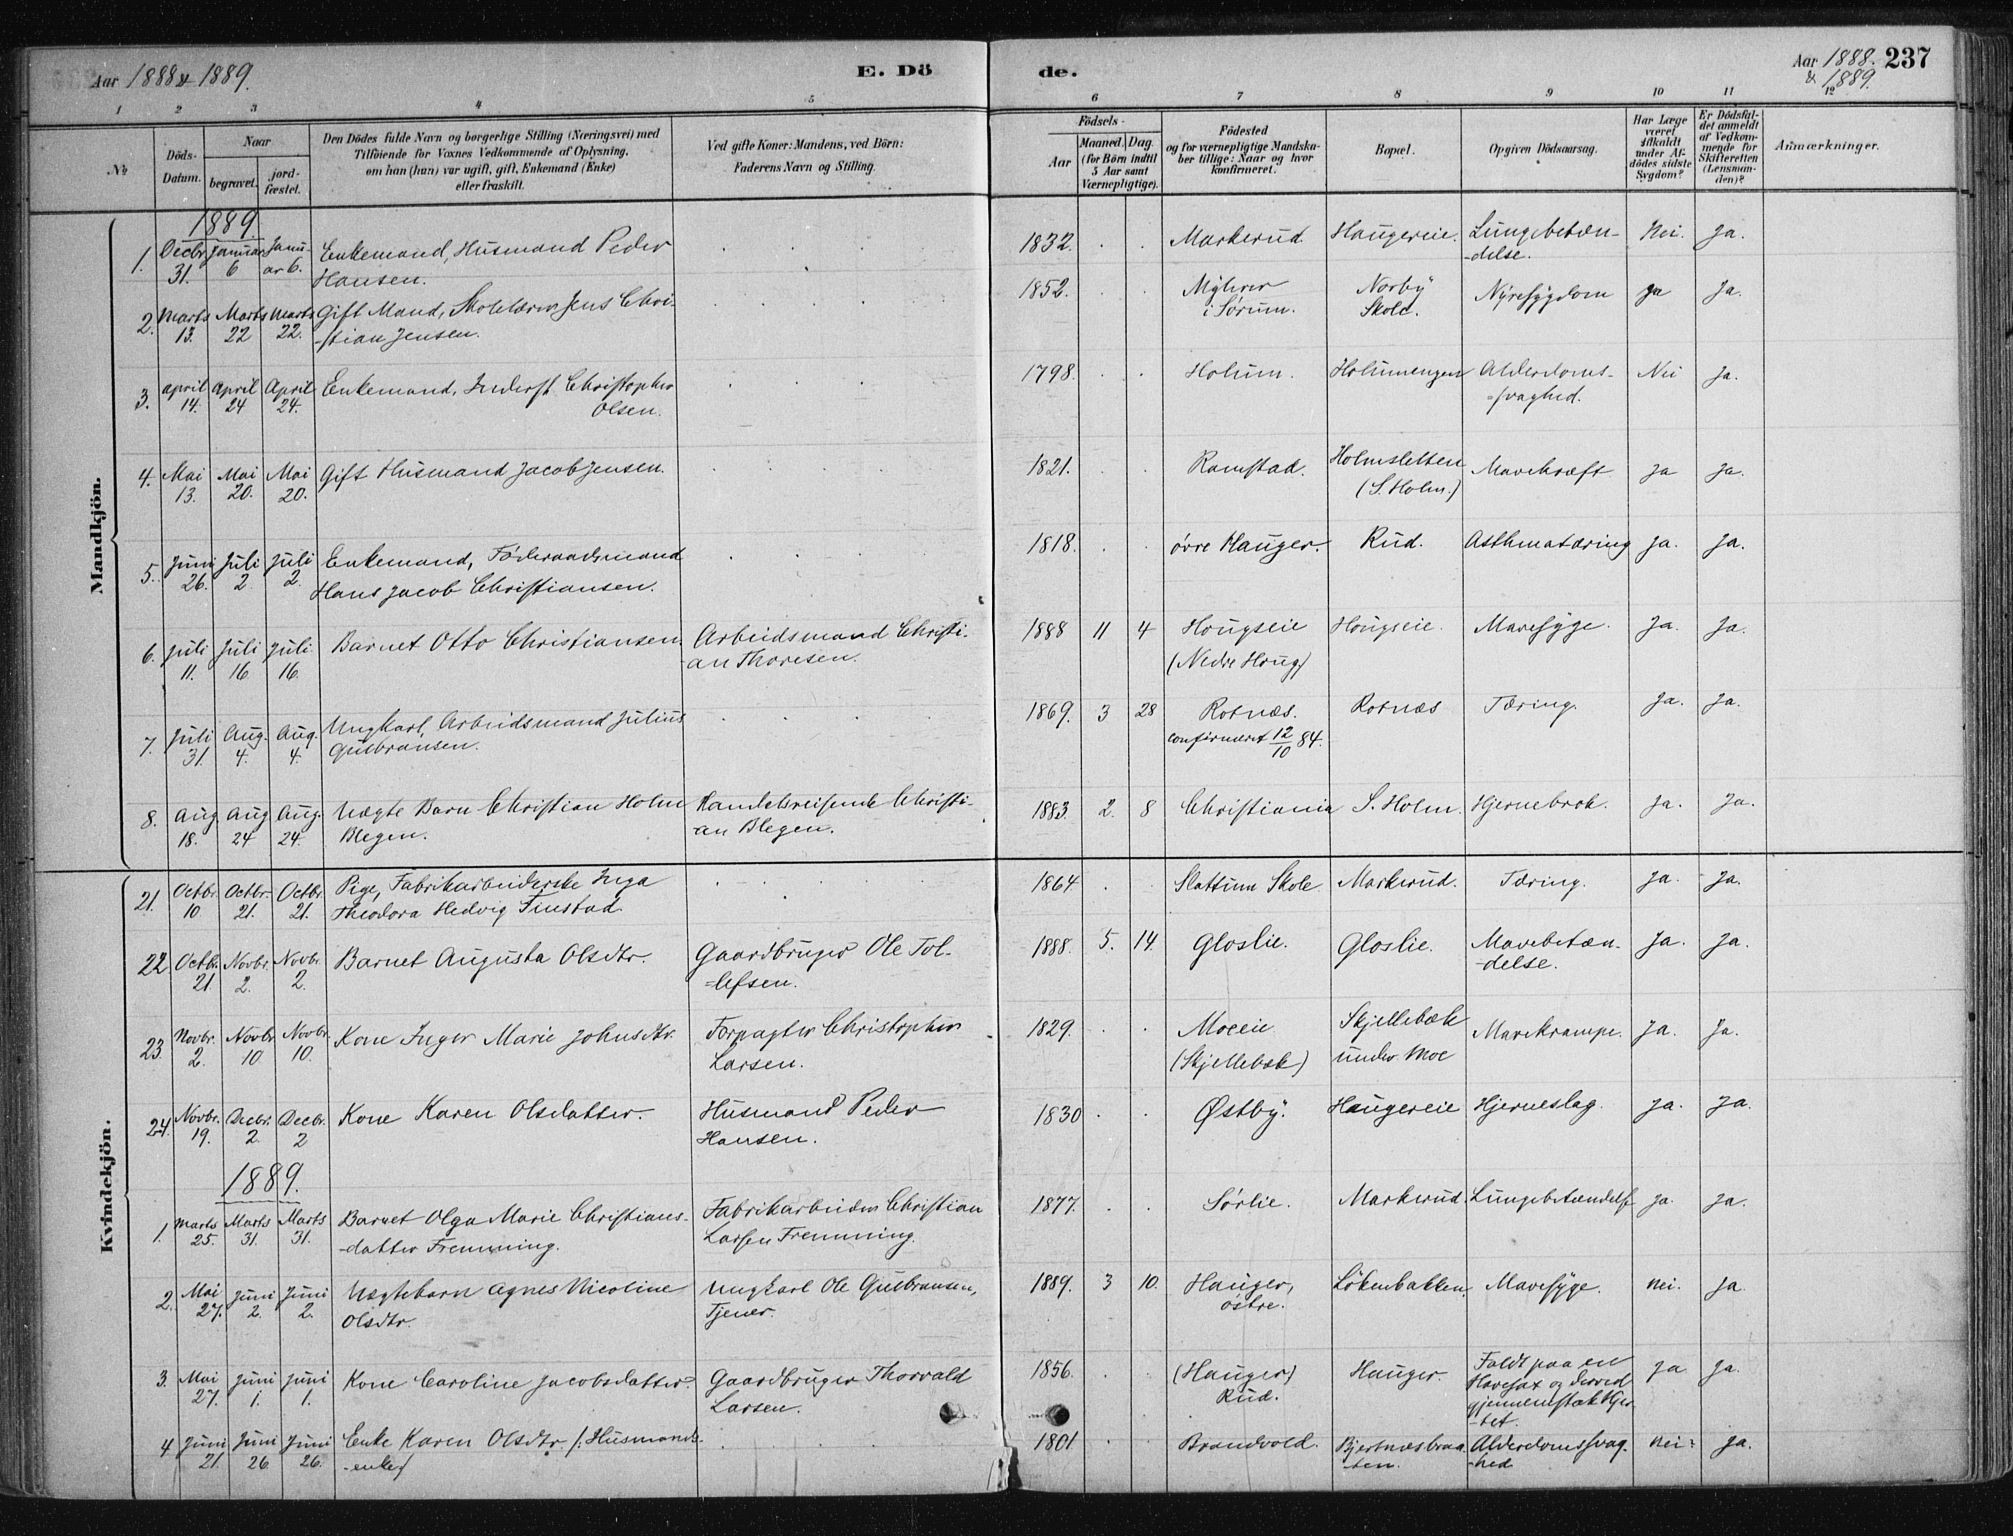 Aar 1888 & 1889.
E. Dö
de.
Aar 1888. & 1889.
237
1 2 3 4 5 6 7 8 9 10 11 12
No
Döds-Datum.
Naar
begravet.
jord-fæstet.
Den Dödes fulde Navn og borgerlige Stilling (Næringsvei) med
Tilföiende for Voxnes Vedkommende af Oplysning,
om han (hun) var ugift, gift, Enkemand (Enke)
eller fraskilt.
Ved gifte Koner: Mandens, ved Börn:
Faderens Navn og Stilling.
Födsels-
Aar
Maaned. Dag.
(for Börn indtil
5 Aar samt
Værnepligtige).
Födested
og for værnepligtige Mandska-
ber tillige: Naar og hvor
konfirmeret.
Bopæl.
Opgiven Dödsaarsag.
Har Læge
været
tilkaldt
under Af-
dödes sidste
Sygdom?
Er Dödsfal-
det anmeldt
af Vedkom-
mende for
Skifteretten
(Lensman-
den)?
Anmærkninger.
Mandkjön.
1889.
1. Decbr. 31. Januar 6 Janu-ar 6. Enkemand, Husmand Peder Hansen. 1832. Markerud. Haugereie. Lungebetæn-delse. Nei. Ja.
2. Marts 13. Marts 22 Marts 22. Gift Mand, Skolelærer Jens Chri-stian Jensen. 1852. Myhrer i Sørum. Norby Skole. Nyresygdom Ja Ja.
3. April 14. April 24 April 24. Enkemand, Inderst Christopher Olsen. 1798. Holum. Holumengen Alderdoms-svaghed. Nei Ja.
4. Mai 13. Mai 20. Mai 20. Gift Husmand Jacob Jensen. 1821. Ramstad. Holmsletten (S. Holm.) Mavekræft Ja Ja.
5. Juni 26. Juli 2 Juli 2. Enkemand, Føderaadsmand Hans Jacob Christiansen. 1818. øvre Hauger. Rud. Asthmatæring Ja. Ja.
6. Juli 11. Juli 16 Juli 16. Barnet Otto Christiansen. Arbeidsmand Christi-an Thoresen. 1888 11 4 Hougseie (Nedre Houg) Hougseie. Mavesyge. Ja. Ja.
7. Juli 31. Aug. 4. Aug. 4. Ungkarl, Arbeidsmand Julius Gulbransen. 1869. 3 28 Rotnæs. confirmeret 12/10 84. Rotnæs Tæring. Ja. Ja.
8. Aug 18. Aug 24 Aug. 24. Uægte Barn Christian Holm Blegen. Handelsreisende Christi-an Blegen. 1883. 2. 8 Christiania S. Holm. Hjernebrok. Ja. Ja.
Kvindekjön.
21. Octbr. 10 Octbr. 21. Octbr. 21. Pige, Fabrikarbeiderske Inga Theodora Hedvig Finstad. 1864 Slattum Skole Markerud. Tæring. Ja. Ja.
22 Octbr. 21. Novbr. 2. Novbr. 2. Barnet Augusta Olsdtr. Gaardbruger Ole Tol-lefsen. 1888. 5. 14 Gloslie. Gloslie. Mavebetæn-delse. Ja. Ja.
23 Novbr. 2. Novbr. 10 Novbr. 10. Kone Inger Marie Johnsdtr. Forpagter Christopher Larsen. 1829. Moeeie (Skjellebæk) Skjellebæk under Moe Mavekrampe. Ja. Ja.
24. Novbr. 19. Decbr. 2. Decbr. 2 Kone Karen Olsdatter. Husmand Peder Hansen. 1830 Østby. Haugereie Hjerneslag. Ja. Ja.
1889.
1. Marts 25. Marts 31. Marts 31. Barnet Olga Marie Christians-datter Fremming. Fabrikarbeider Christian Larsen Fremming. 1877. Sørlie. Markerud. Lungebetændelse Ja. Ja.
2. Mai 27. Juni 2. Juni 2. Uægtebarn Agnes Nicoline Olsdtr. Ungkarl Ole Gulbransen, Tjener. 1889. 3 10. Hauger, østre. Løkenbakken. Mavesyge. Nei. Ja
3. Mai 27. Juni 1. Juni 1. Kone Caroline Jacobsdatter. Gaardbruger Thorvald Larsen. 1856. (Hauger) Rud. Hauger Faldt paa en Havesax og derved gjennemstak Hjer-tet. Ja Ja.
4 Juni 21 Juni 26. Juni 26. Enke Karen Olsdtr. /:Husmands-enke/ 1801 Brandvold. Bjertnæsbraa-ten. Alderdomssvag-hed Nei. Ja.